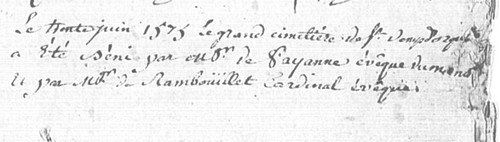 Le trente juin 1575 Le grand cimetière de St. Denys d'orques
a été Béni par Mgr. de Tayanne évêque du mans
et par Mgr. de Rambouillet Cardinal évêque.